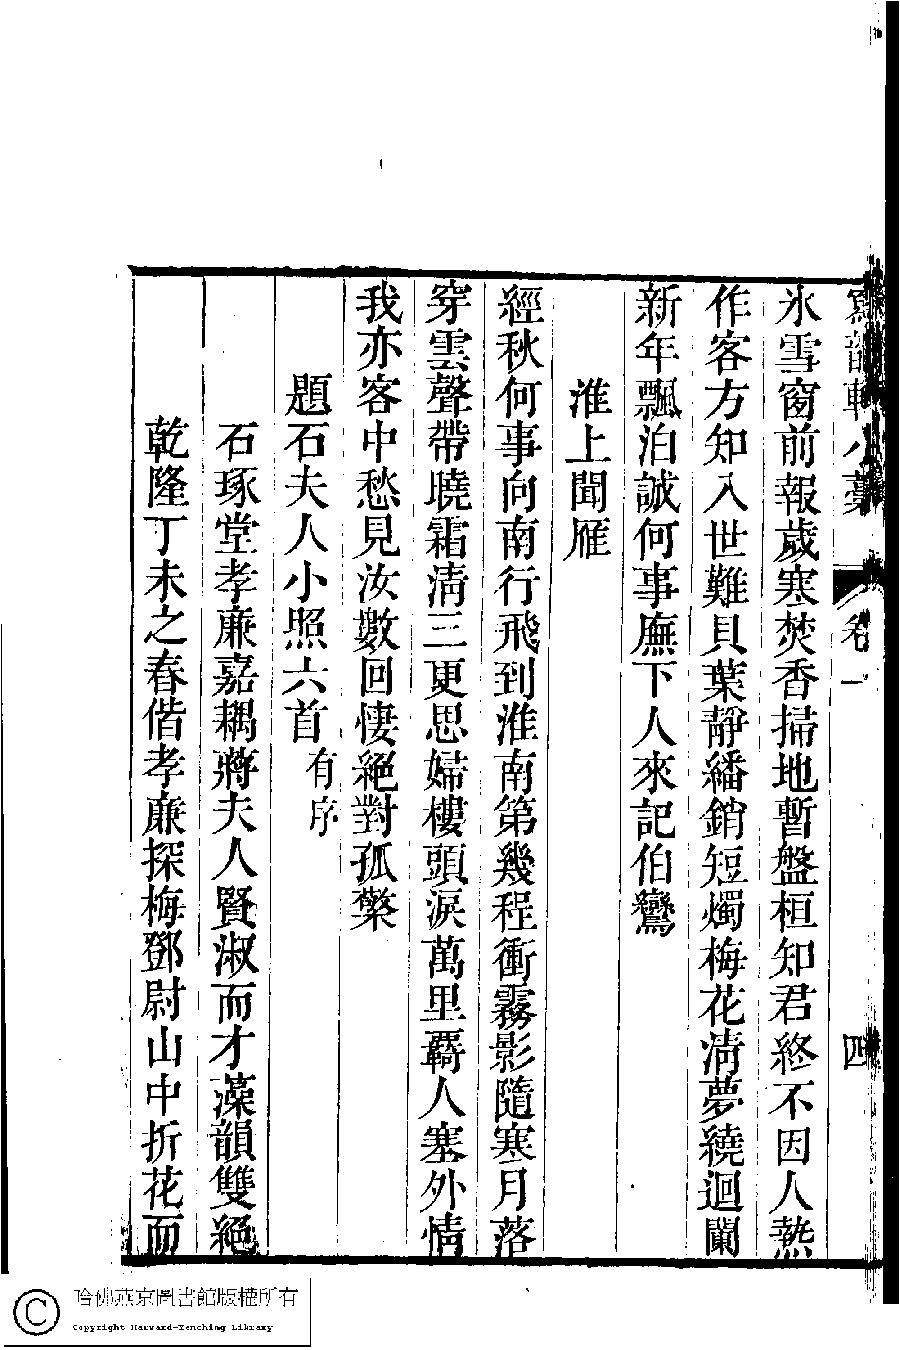 寫韻軒小藁 卷一 四
氷雪窗前報歲寒焚香掃地暫盤桓知君終不因人熱
作客方知入世難貝葉靜繙銷短燭梅花淸夢繞迴闌
新年飄泊誠何事廡下人來記伯鸞
淮上聞雁
經秋何事向南行飛到淮南第幾程衝霧影隨寒月落
穿雲聲帶曉霜淸三更思婦樓頭淚萬里羇人塞外情
我亦客中愁見汝數回悽絕對孤檠
題石夫人小照六首有序
石琢堂孝廉嘉耦蔣夫人賢淑而才藻韻雙絕
乾隆丁未之春偕孝廉探梅鄧尉山中折花而
哈佛燕京圖書館版權所有
Copyright Harvard-Yenching Library